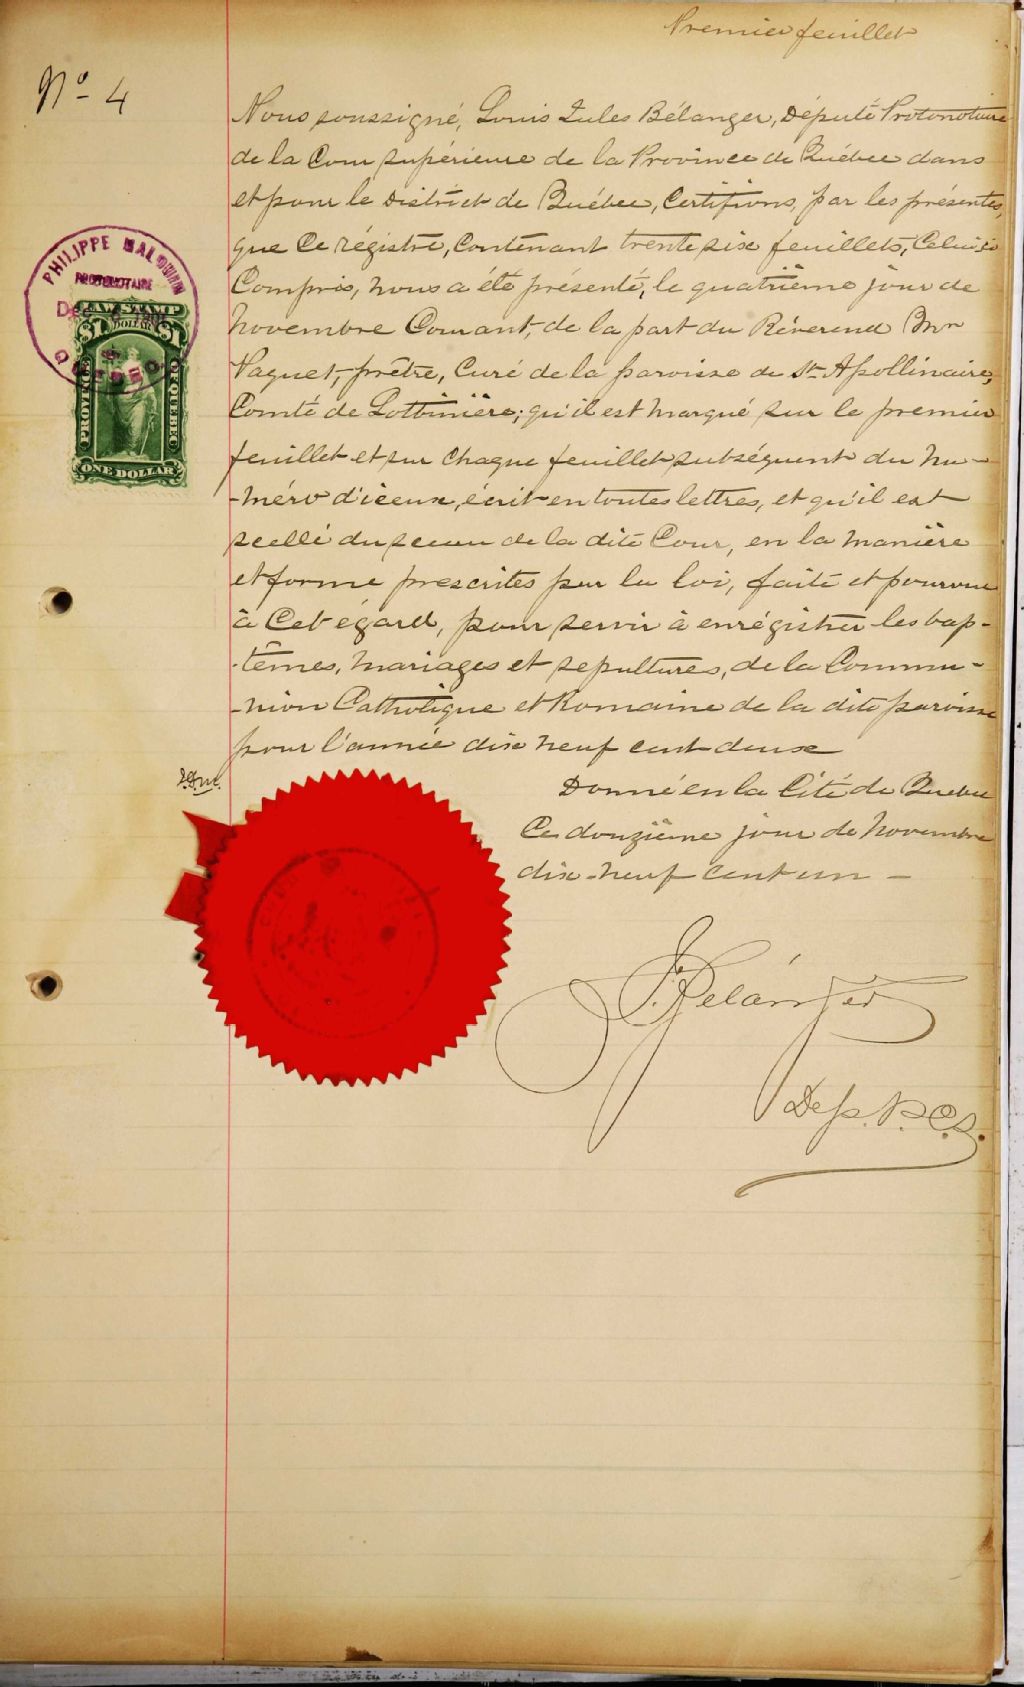 Premier feuillet
No 4
Nous soussigné, Louis Jules Bélanger, Député Protonotaire
de la Cour supérieure de la Province de Québec dans
et pour le District de Québec, Certifions, par les présentes,
que Ce régistre, Contenant trente six feuillets, Celui ci
Compris, nous a été présenté, le quatrième jour de
Novembre Courant, de la part du Révérend Mr
Naquet, prêtre, Curé de la paroisse de St Apollinaire,
Comté de Lotbinière; qu'il est marqué sur le premier
feuillet et sur chaque feuillet subséquent du nu-
-méro d'iceux, écrit en toutes lettres, et qu'il est
scellé du sceau de la dite Cour, en la manière
et forme prescrites par la loi, faite et pourvue
à Cet égard, pour servir à enrégistrer les bap-
-têmes, mariages et sépultures, de la Commu-
-nion Catholique et Romaine de la dite paroisse
pour l'année dix neuf cent deux
Donné en la Cité de Québec
Ce douzième jour de Novembre
dix-neuf cent un -
J. Bélanger
Dep. P. C. S.
PHILIPPE MALOUIN
PROTONOTAIRE
QUEBEC
LAW STAMP
$1 DOLLAR $1
PROVINCE OF QUEBEC
ONE DOLLAR